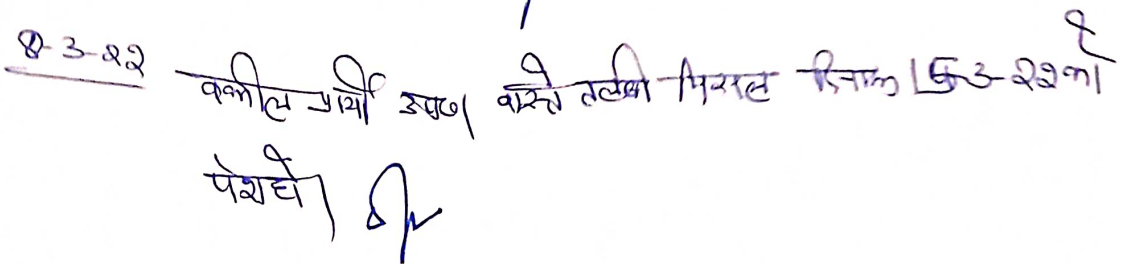 8-3-22 वकील प्रार्थी उप०। वास्ते तलबी मिसल दिनांक 15-3-22 को
पेश हो।